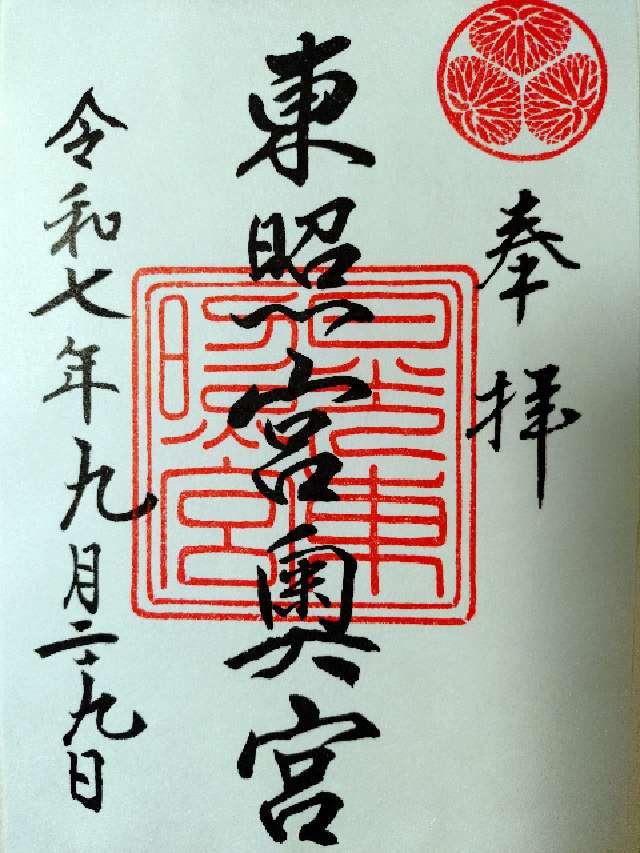 奉拝
東照宮奥宮
日光東照宮
令和七年九月二九日